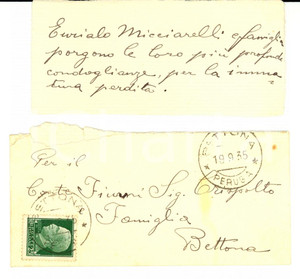 Eurialo Micciarelli e famiglia
porgono le loro più profonde
condoglianze, per la imma=
tura perdita.
BETTONA
19.9.35
PERUGIA
Per il
Conte Fiumi Sig. Crispolto
Famiglia
Bettona